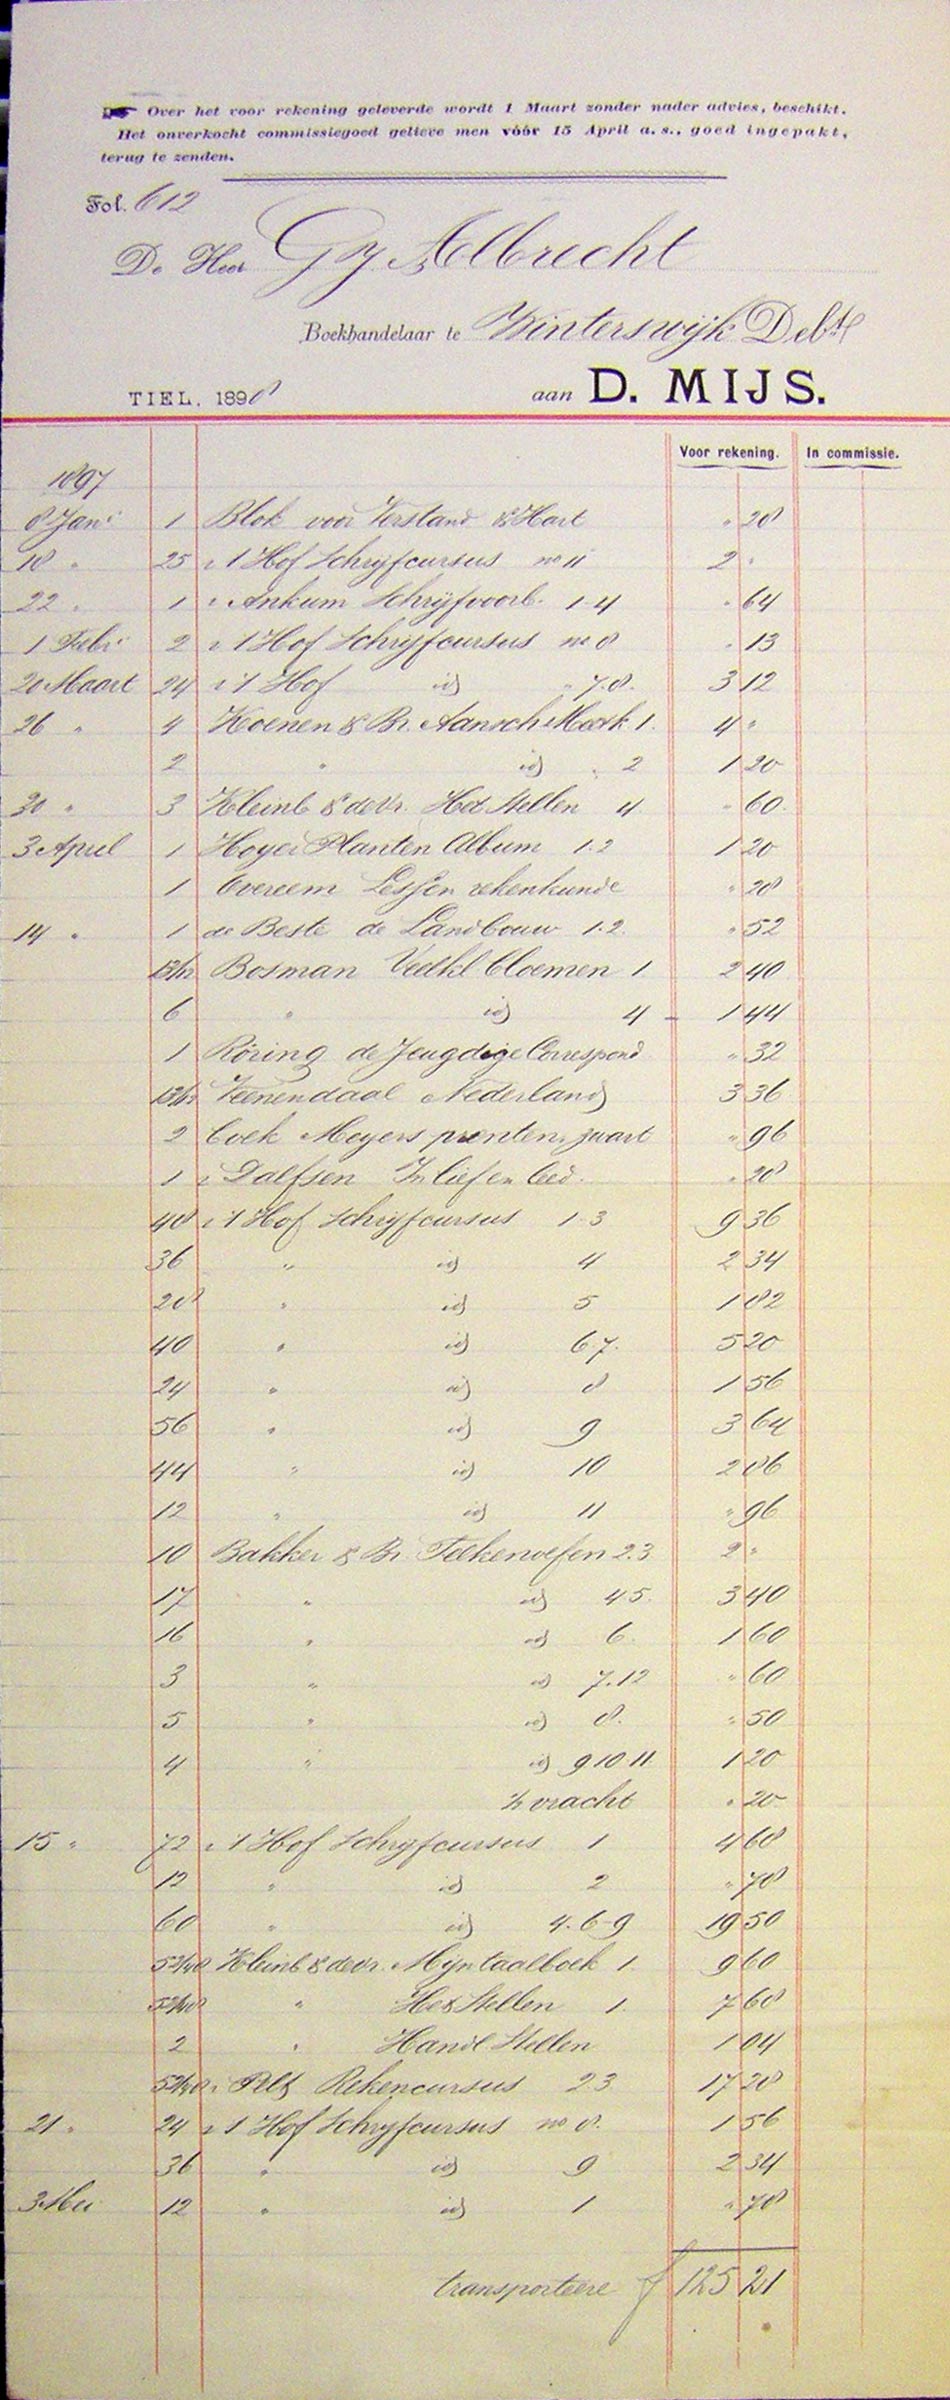 Over het voor rekening geleverde wordt 1 Maart zonder nader advies, beschikt.
Het onverkocht commissiegoed gelieve men vóór 15 April a.s., goed ingepakt,
terug te zenden.
Fol. 612
De Heer G J Albrecht
Boekhandelaar te Winterswijk Debt
TIEL, 1898 aan D. MIJS.
Voor rekening. In commissie.
1897
8 Jani 1 Blok voor Verstand & Hart " 28
18 " 25 v 't Hof Schrijfcursus no 11 2 "
22 " 1 v Ankum Schrijfvoorb. 1-4 " 64
1 Febr 2 v 't Hof Schrijfcursus no 8 " 13
20 Maart 24 v 't Hof id " 7.8. 3 12
26 " 4 Koenen & Br. Aansch Meetk 1. 4 "
2 " id " 2 1 20
30 " 3 Kleinb & de Vr. Het Stellen 4. " 60
3 April 1 Hoyer Planten Album 1.2 1 20
1 Evereem Lessen rekenkunde " 28
14 " 1 de Beste de Landbouw 1.2. " 52
13/12 Bosman Veelkl bloemen 1 2 40
6 " id 4 1 44
1 Röring de Jeugdige Correspond " 32
13/12 Veenendaal Nederland 3 36
2 boek Meyers prenten, zwart " 96
1 v Dalfsen In lief en leed. " 28
48 v 't Hof Schrijfcursus 1-3 9 36
36 " id 4 2 34
28 " id 5 1 82
40 " id 6.7. 5 20
24 " id 8 1 56
56 " id 9 3 64
44 " id 10 2 86
12 " id 11 " 96
10 Bakker & Br. Teekenoefen 2.3 2 "
17 " id 4 5. 3 40
16 " id 6. 1 60
3 " id 7.12 " 60
5 " id 8. " 50
4 " id 9 10.11. 1 20
½ vracht " 20
15 " 72 v 't Hof Schrijfcursus 1 4 68
12 " id 2 " 78
60 " id 4. 6-9 19 50
52/48 Kleinb & de Vr. Mijn taalboek 1. 9 60
52/48 " Het Stellen 1. 7 68
2 " Handl Stellen 1 04
52/48 v Pelt Rekencursus 2.3 17 28
21 " 24 v 't Hof Schrijfcursus no 8. 1 56
36 " id 9 2 34
3 Mei 12 " id 1 " 78
transporteere f 125 21